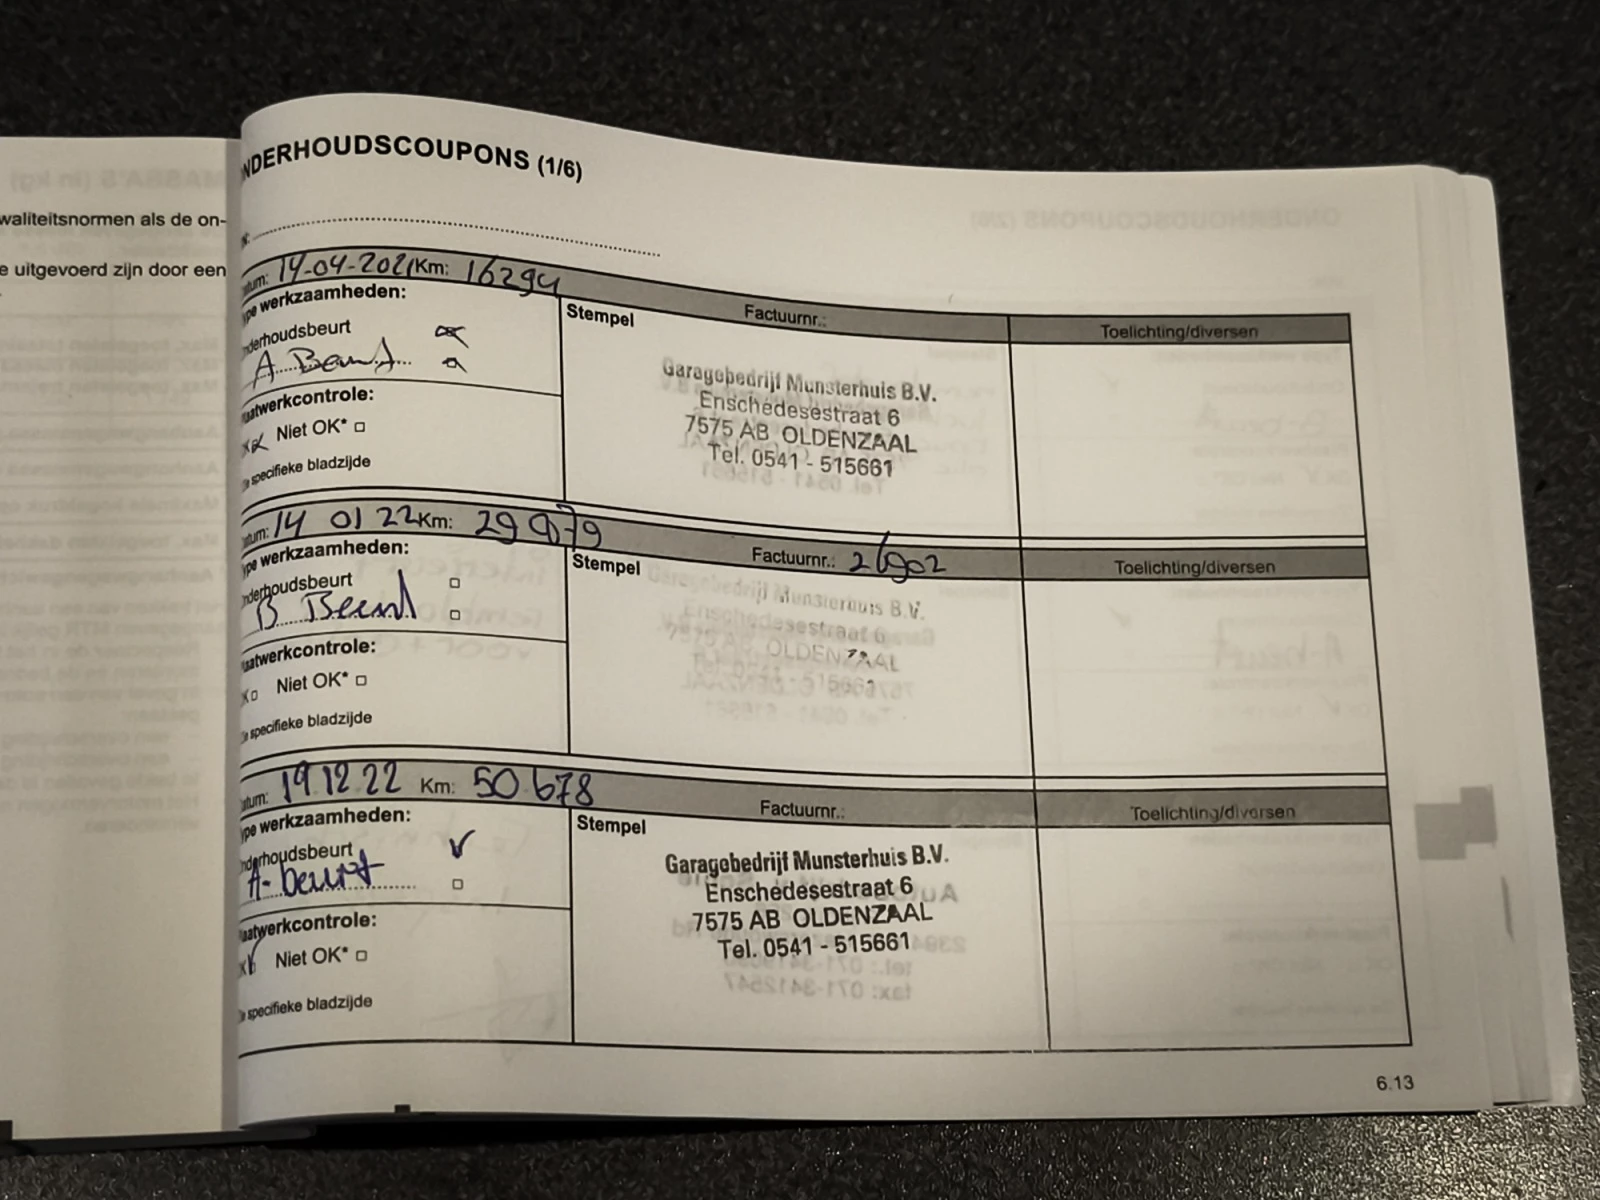 waliteitsnormen als de on-
e uitgevoerd zijn door een
NDERHOUDSCOUPONS (1/6)
atum: 14-04-2021 Km: 16294
Factuurnr.:
Toelichting/diversen
ype werkzaamheden:
Stempel
nderhoudsbeurt
A Beurt
Garagebedrijf Munsterhuis B.V.
Enschedesestraat 6
7575 AB OLDENZAAL
Tel. 0541 - 515661
laatwerkcontrole:
Niet OK*
specifieke bladzijde
atum: 14 01 22 Km: 29979
Factuurnr.: 26902
Toelichting/diversen
ype werkzaamheden:
Stempel
nderhoudsbeurt
B Beurt
Garagebedrijf Munsterhuis B.V.
Enschedesestraat 6
7575 A OLDENZAAL
- 515661
laatwerkcontrole:
Niet OK*
specifieke bladzijde
atum: 19.12.22 Km: 50.678
Factuurnr.:
Toelichting/diversen
ype werkzaamheden:
Stempel
nderhoudsbeurt
A-beurt
Garagebedrijf Munsterhuis B.V.
Enschedesestraat 6
7575 AB OLDENZAAL
Tel. 0541 - 515661
laatwerkcontrole:
Niet OK*
specifieke bladzijde
6.13